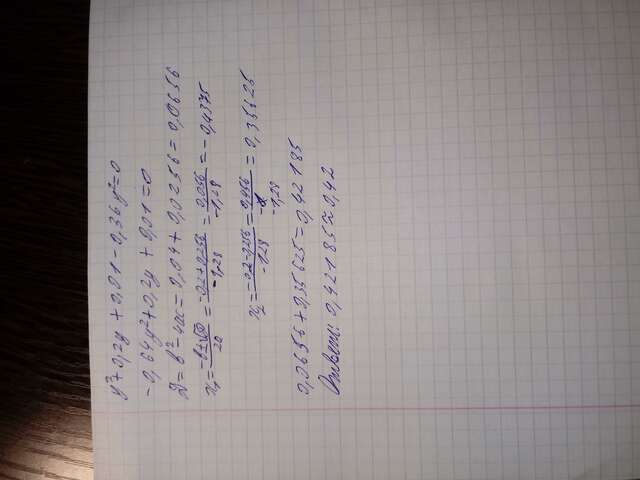 y²+0,2y+0,01-0,36y²=0
-0,64y²+0,2y+0,01=0
D=b²-4ac=0,04+0,0256=0,0656
x₁=(-b±√D)/2a=(-0,2+0,256)/-1,28=0,056/-1,28=-0,4375
x₂=(-0,2-0,256)/-1,28=0,456/-1,28=0,35625
0,0656+0,35625=0,42185
Ответ: 0,42185≈0,42